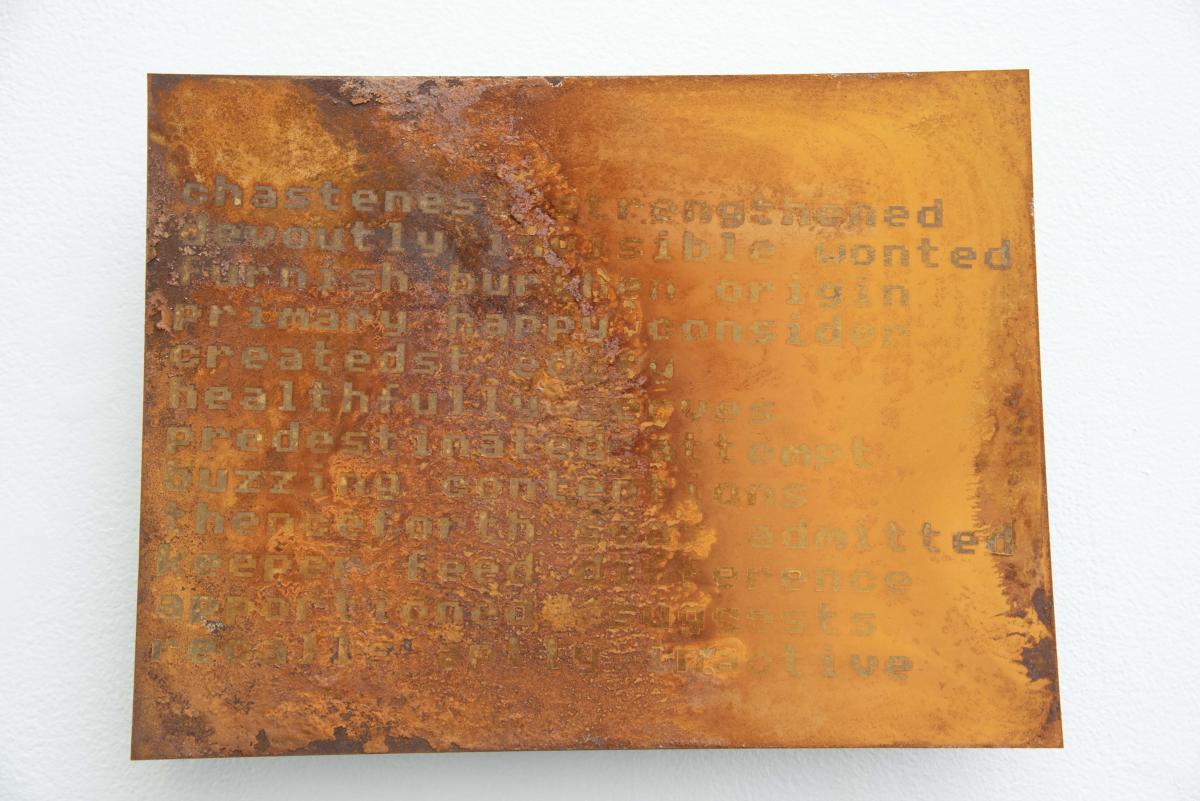 chastenest strengthened
devoutly invisible wonted
furnish burthen origin
primary happy consider
createdst
healthfully serves
predestinated attempt
buzzing contentions
thenceforth admitted
keeper feed difference
apportioned suggests
recalls inactive